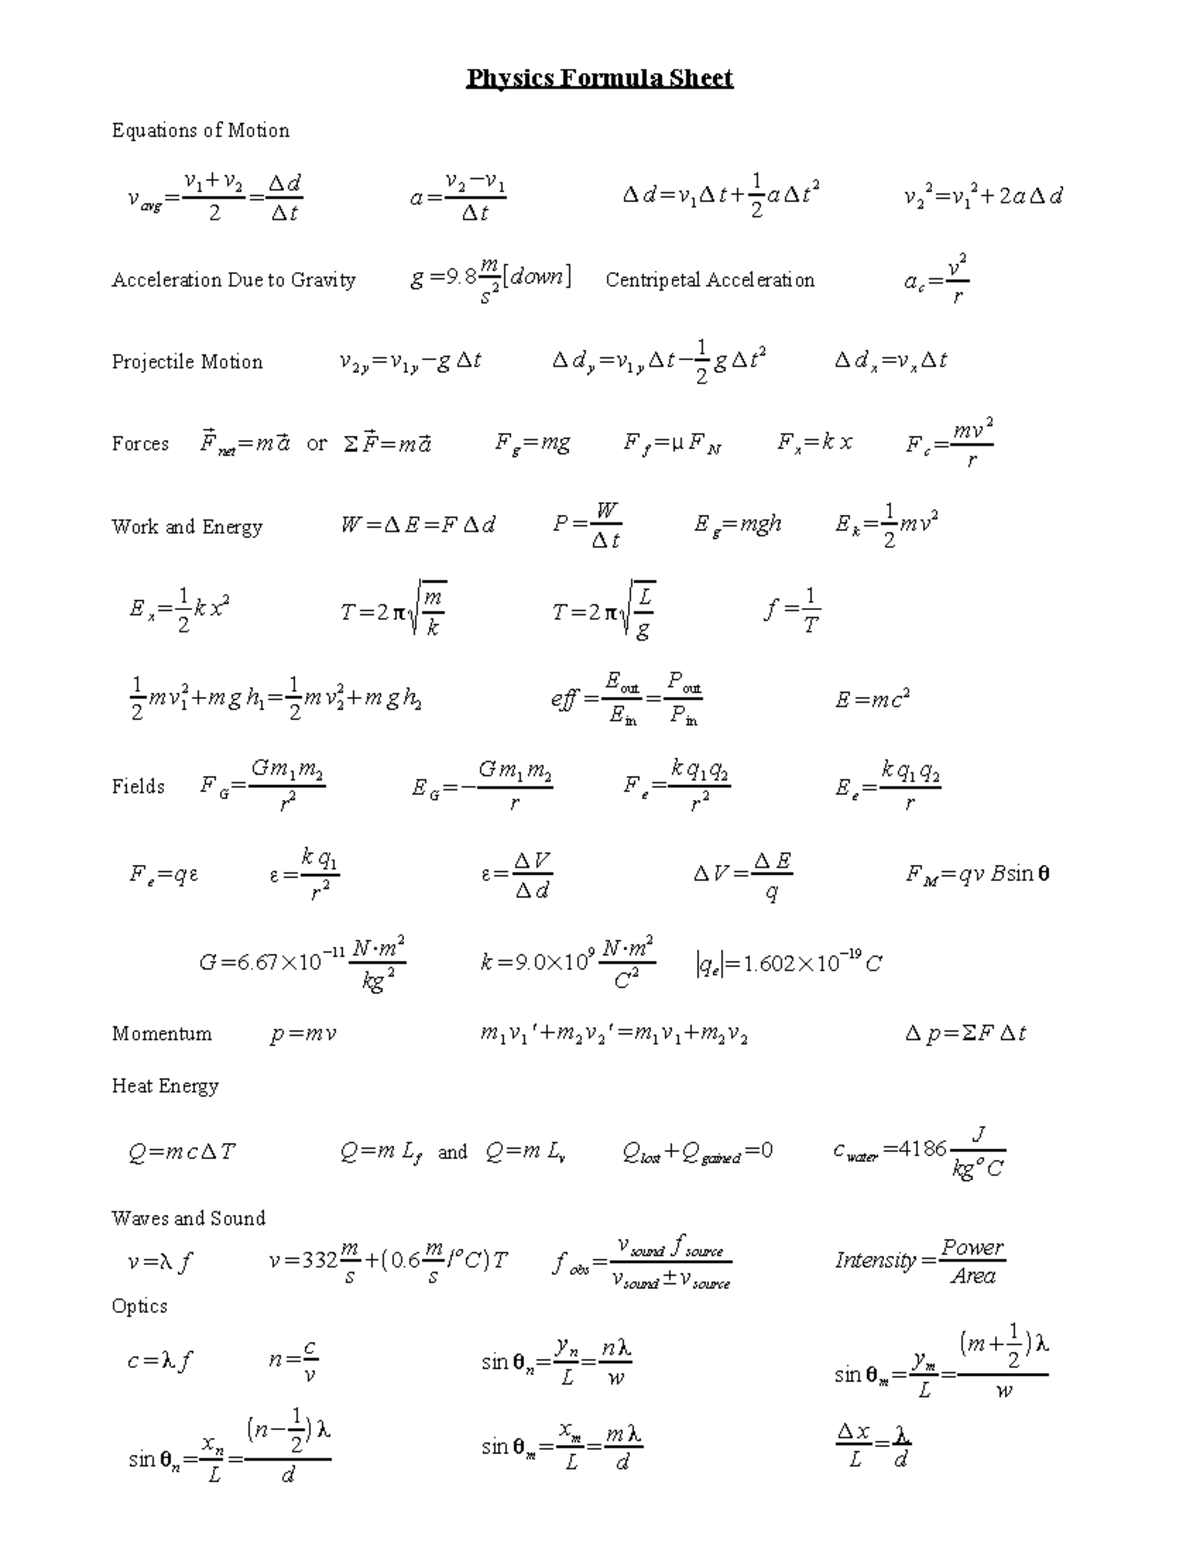 Physics Formula Sheet
Equations of Motion
v_avg = (v₁ + v₂)/2 = Δd/Δt    a = (v₂ − v₁)/Δt    Δd = v₁Δt + 1/2 aΔt²    v₂² = v₁² + 2aΔd
Acceleration Due to Gravity    g = 9.8 m/s² [down]    Centripetal Acceleration    a_c = v²/r
Projectile Motion    v_2y = v_1y − gΔt    Δd_y = v_1yΔt − 1/2 gΔt²    Δd_x = v_xΔt
Forces    F⃗_net = ma⃗ or ΣF⃗ = ma⃗    F_g = mg    F_f = μF_N    F_x = kx    F_c = mv²/r
Work and Energy    W = ΔE = FΔd    P = W/Δt    E_g = mgh    E_k = 1/2 mv²
E_x = 1/2 kx²    T = 2π√(m/k)    T = 2π√(L/g)    f = 1/T
1/2 mv₁² + mgh₁ = 1/2 mv₂² + mgh₂    eff = E_out/E_in = P_out/P_in    E = mc²
Fields    F_G = Gm₁m₂/r²    E_G = −Gm₁m₂/r    F_e = kq₁q₂/r²    E_e = kq₁q₂/r
F_e = qε    ε = kq₁/r²    ε = ΔV/Δd    ΔV = ΔE/q    F_M = qvBsinθ
G = 6.67×10⁻¹¹ N·m²/kg²    k = 9.0×10⁹ N·m²/C²    |q_e| = 1.602×10⁻¹⁹ C
Momentum    p = mv    m₁v₁' + m₂v₂' = m₁v₁ + m₂v₂    Δp = ΣFΔt
Heat Energy
Q = mcΔT    Q = mL_f and Q = mL_v    Q_lost + Q_gained = 0    c_water = 4186 J/kg°C
Waves and Sound
v = λf    v = 332 m/s + (0.6 m/s/°C)T    f_obs = v_sound f_source/(v_sound ± v_source)    Intensity = Power/Area
Optics
c = λf    n = c/v    sinθ_n = y_n/L = nλ/w    sinθ_m = y_m/L = (m + 1/2)λ/w
sinθ_n = x_n/L = (n − 1/2)λ/d    sinθ_m = x_m/L = mλ/d    Δx/L = λ/d